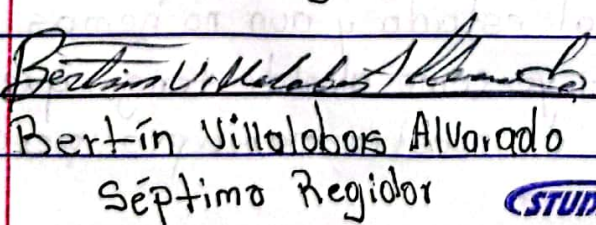 Bertín Villalobos Alvarado
Bertín Villalobos Alvarado
Séptimo Regidor